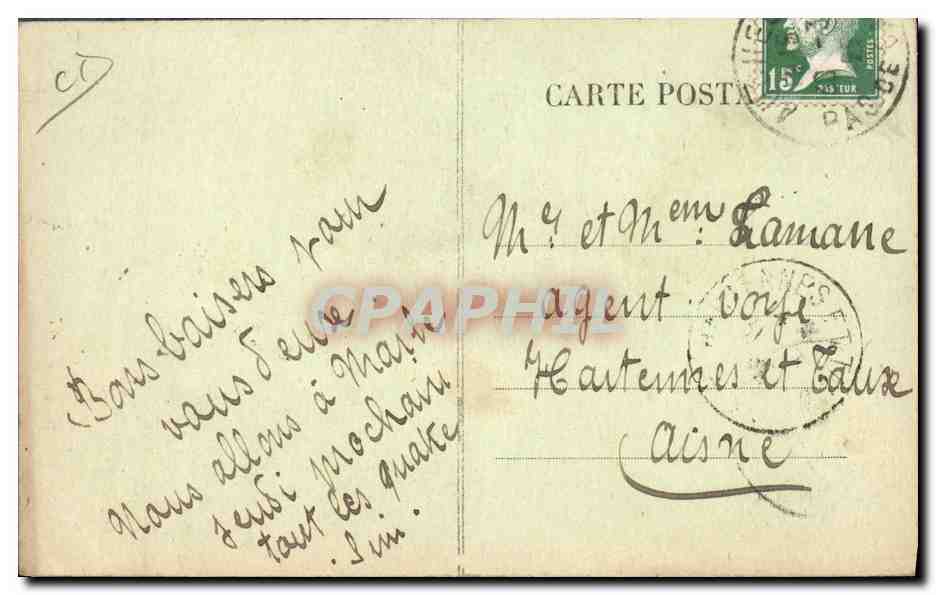 CARTE POSTA
15c
POSTES
PASTEUR
Bons baisers pour
vous deux.
Nous allons à
jeudi prochain
tout les quatre
CPAPHIL
Mr et Mem: Lamane
agent voyé
Hartennes et Taux
Aisne